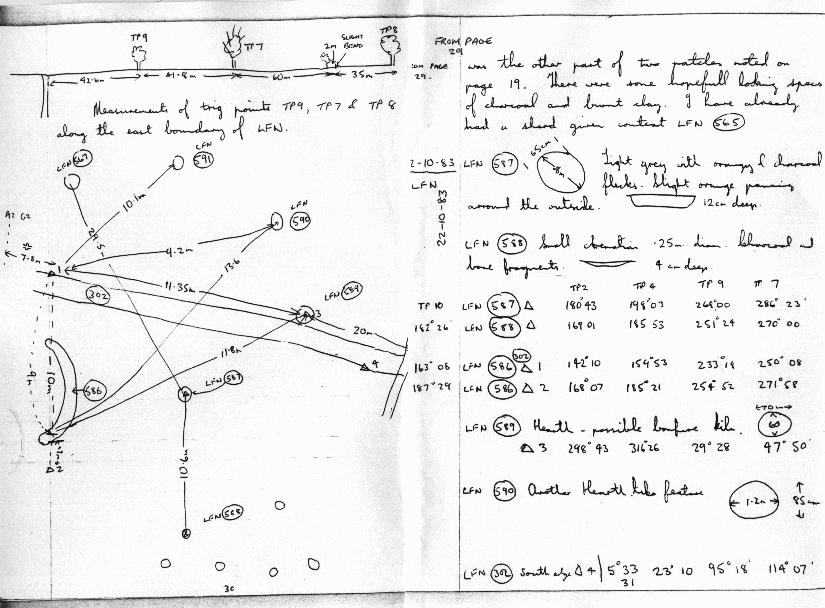 TP9
TP7
2m
SLIGHT
BEND
TP8
42.6m
41.8m
60m
35m
Measurements of trig points TP9, TP7 & TP8
along the east boundary of LFN.
LFN 567
LFN
591
10.1m
LFN
590
A2 G2
7.8m
1
9.2m
13.6
11.35m
302
LFN 589
3
20m
11.8m
4
10m
586
LFN 587
10.6m
LFN 588
30
FROM PAGE
29
FROM PAGE
29.
was the other part of two patches noted on
page 19. There were some hopefull looking specs
of charcoal and burnt clay. I have already
had a sherd given context LFN 565
2-10-83
LFN
22-10-83
LFN 587
65cm
Light grey with orangy & charcoal
flecks. Slight orange
around the outside.
12cm deep.
LFN 588 Small .25m. diam. Charcoal and
bone fragments.
4 cm deep.
TP2 TP4 TP9 7
TP 10 LFN 587 △ 180°43 198°03 268°00 286°23'
182°26' LFN 588 △ 169 01 185 53 251°24 270°00
163°08 LFN 586 302 △ 1 142°10 154°53 233°18 250°08
187°29 LFN 586 △ 2 168°07 185°21 254°52 271°58
LFN 589 Hearth - possible bonfire kiln.
60
△ 3 298°43 316°26 29°28 47°50'
LFN 590 Another Hearth like feature
1.2m
85cm
LFN 302 South edge △ 4 5°33 23°10 95°18' 114°07'
31